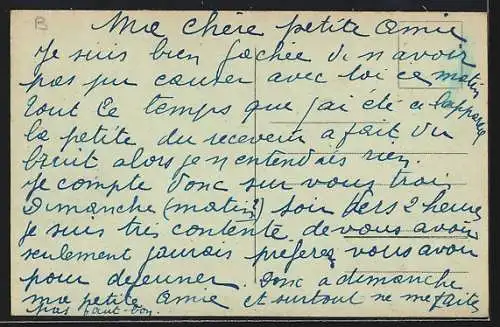 B
Ma chère petite Amie
Je suis bien fachée de n'avoir
pas pu causer avec toi ce matin
tout le temps que j'ai été à l'appareil
la petite du receveur a fait du
bruit alors je n'entendais rien.
Je compte donc sur vous trois
Dimanche (matin?) soir vers 2 heures
je suis très contente de vous avoir
seulement j'aurais préféré vous avoir
pour dejeuner. Donc a dimanche
ma petite Amie et surtout ne me faites
pas faut-bon.